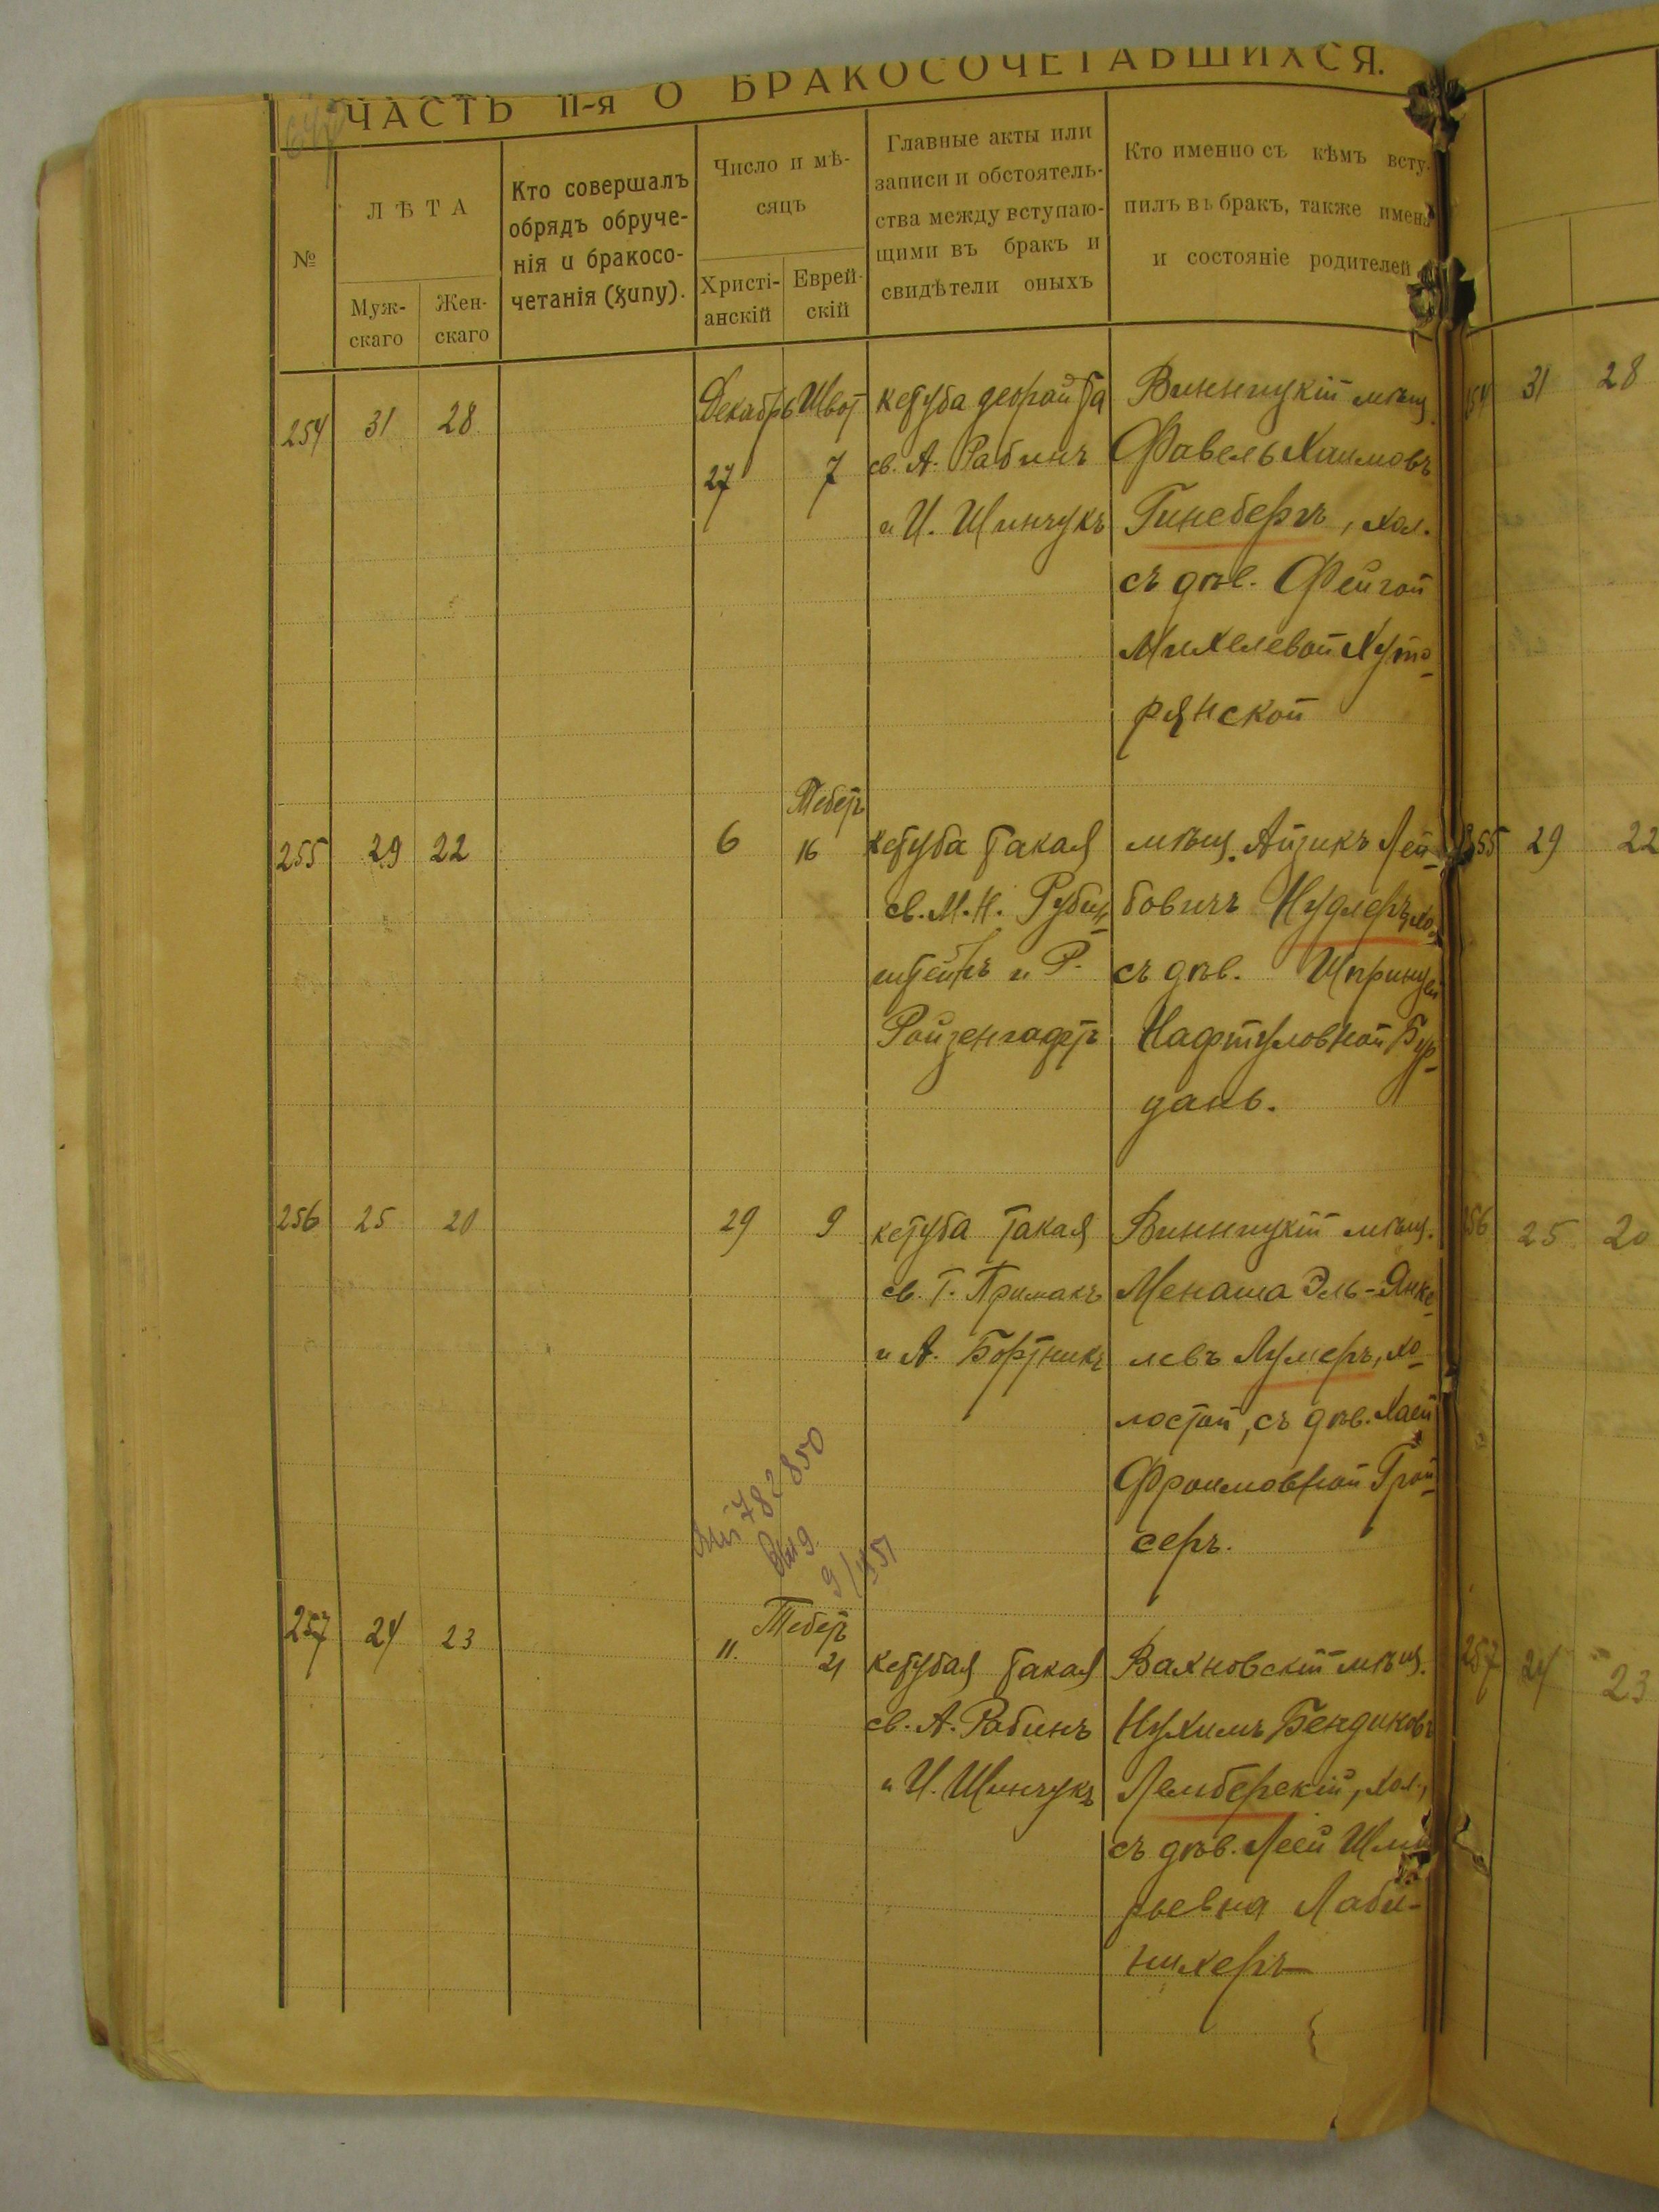 ЧАСТЬ II-я О БРАКОСОЧЕТАВШИХСЯ.
№
ЛѢТА
Муж-
скаго
Жен-
скаго
Кто совершалъ
обрядъ обруче-
нія и бракосо-
четанія (хупу).
Число и мѣ-
сяцъ
Христі-
анскій
Еврей-
скій
Главные акты или
записи и обстоятель-
ства между вступаю-
щими въ бракъ и
свидѣтели оныхъ
Кто именно съ кѣмъ всту-
пилъ въ бракъ, также имена
и состояніе родителей
254 31 28
Декабрь Швот
27 7
кетуба
св. А. Рабинъ
и И. Шинчукъ
Винницкій мѣщ.
Фавель Хаимовъ
Гинсбергъ, хол.
съ дѣв. Фейгой
Михелевой Хуто-
рянской
254 31 28
255 29 22
Тебетъ
6 16
кетуба такая
св. М. Н. Рубин-
штейнъ и Р.
Ройзенгафтъ
мѣщ. Айзикъ Лей-
бовичъ Нудлеръ, хо.
съ дѣв. Шпринцей
Нафтуловной Бур-
дань.
255 29 22
256 25 20
29 9
кетуба такая
св. Г. Примакъ
и А. Бортникъ
Винницкій мѣщ.
Менаша Эль-Янке-
левъ Лумеръ, хо-
лостой, съ дѣв. Хаей
Фроимовной Грой-
серъ.
256 25 20
782850
9/
257 24 23
Тебетъ
11. 21
кетубая такая
св. А. Рабинъ
и И. Шинчукъ
Вахновскій мѣщ.
Нухимъ Бендиковъ
Лемберскій, хол.,
съ дѣв. Леей Шми-
рьевна Лаби-
нихеръ
257 24 23